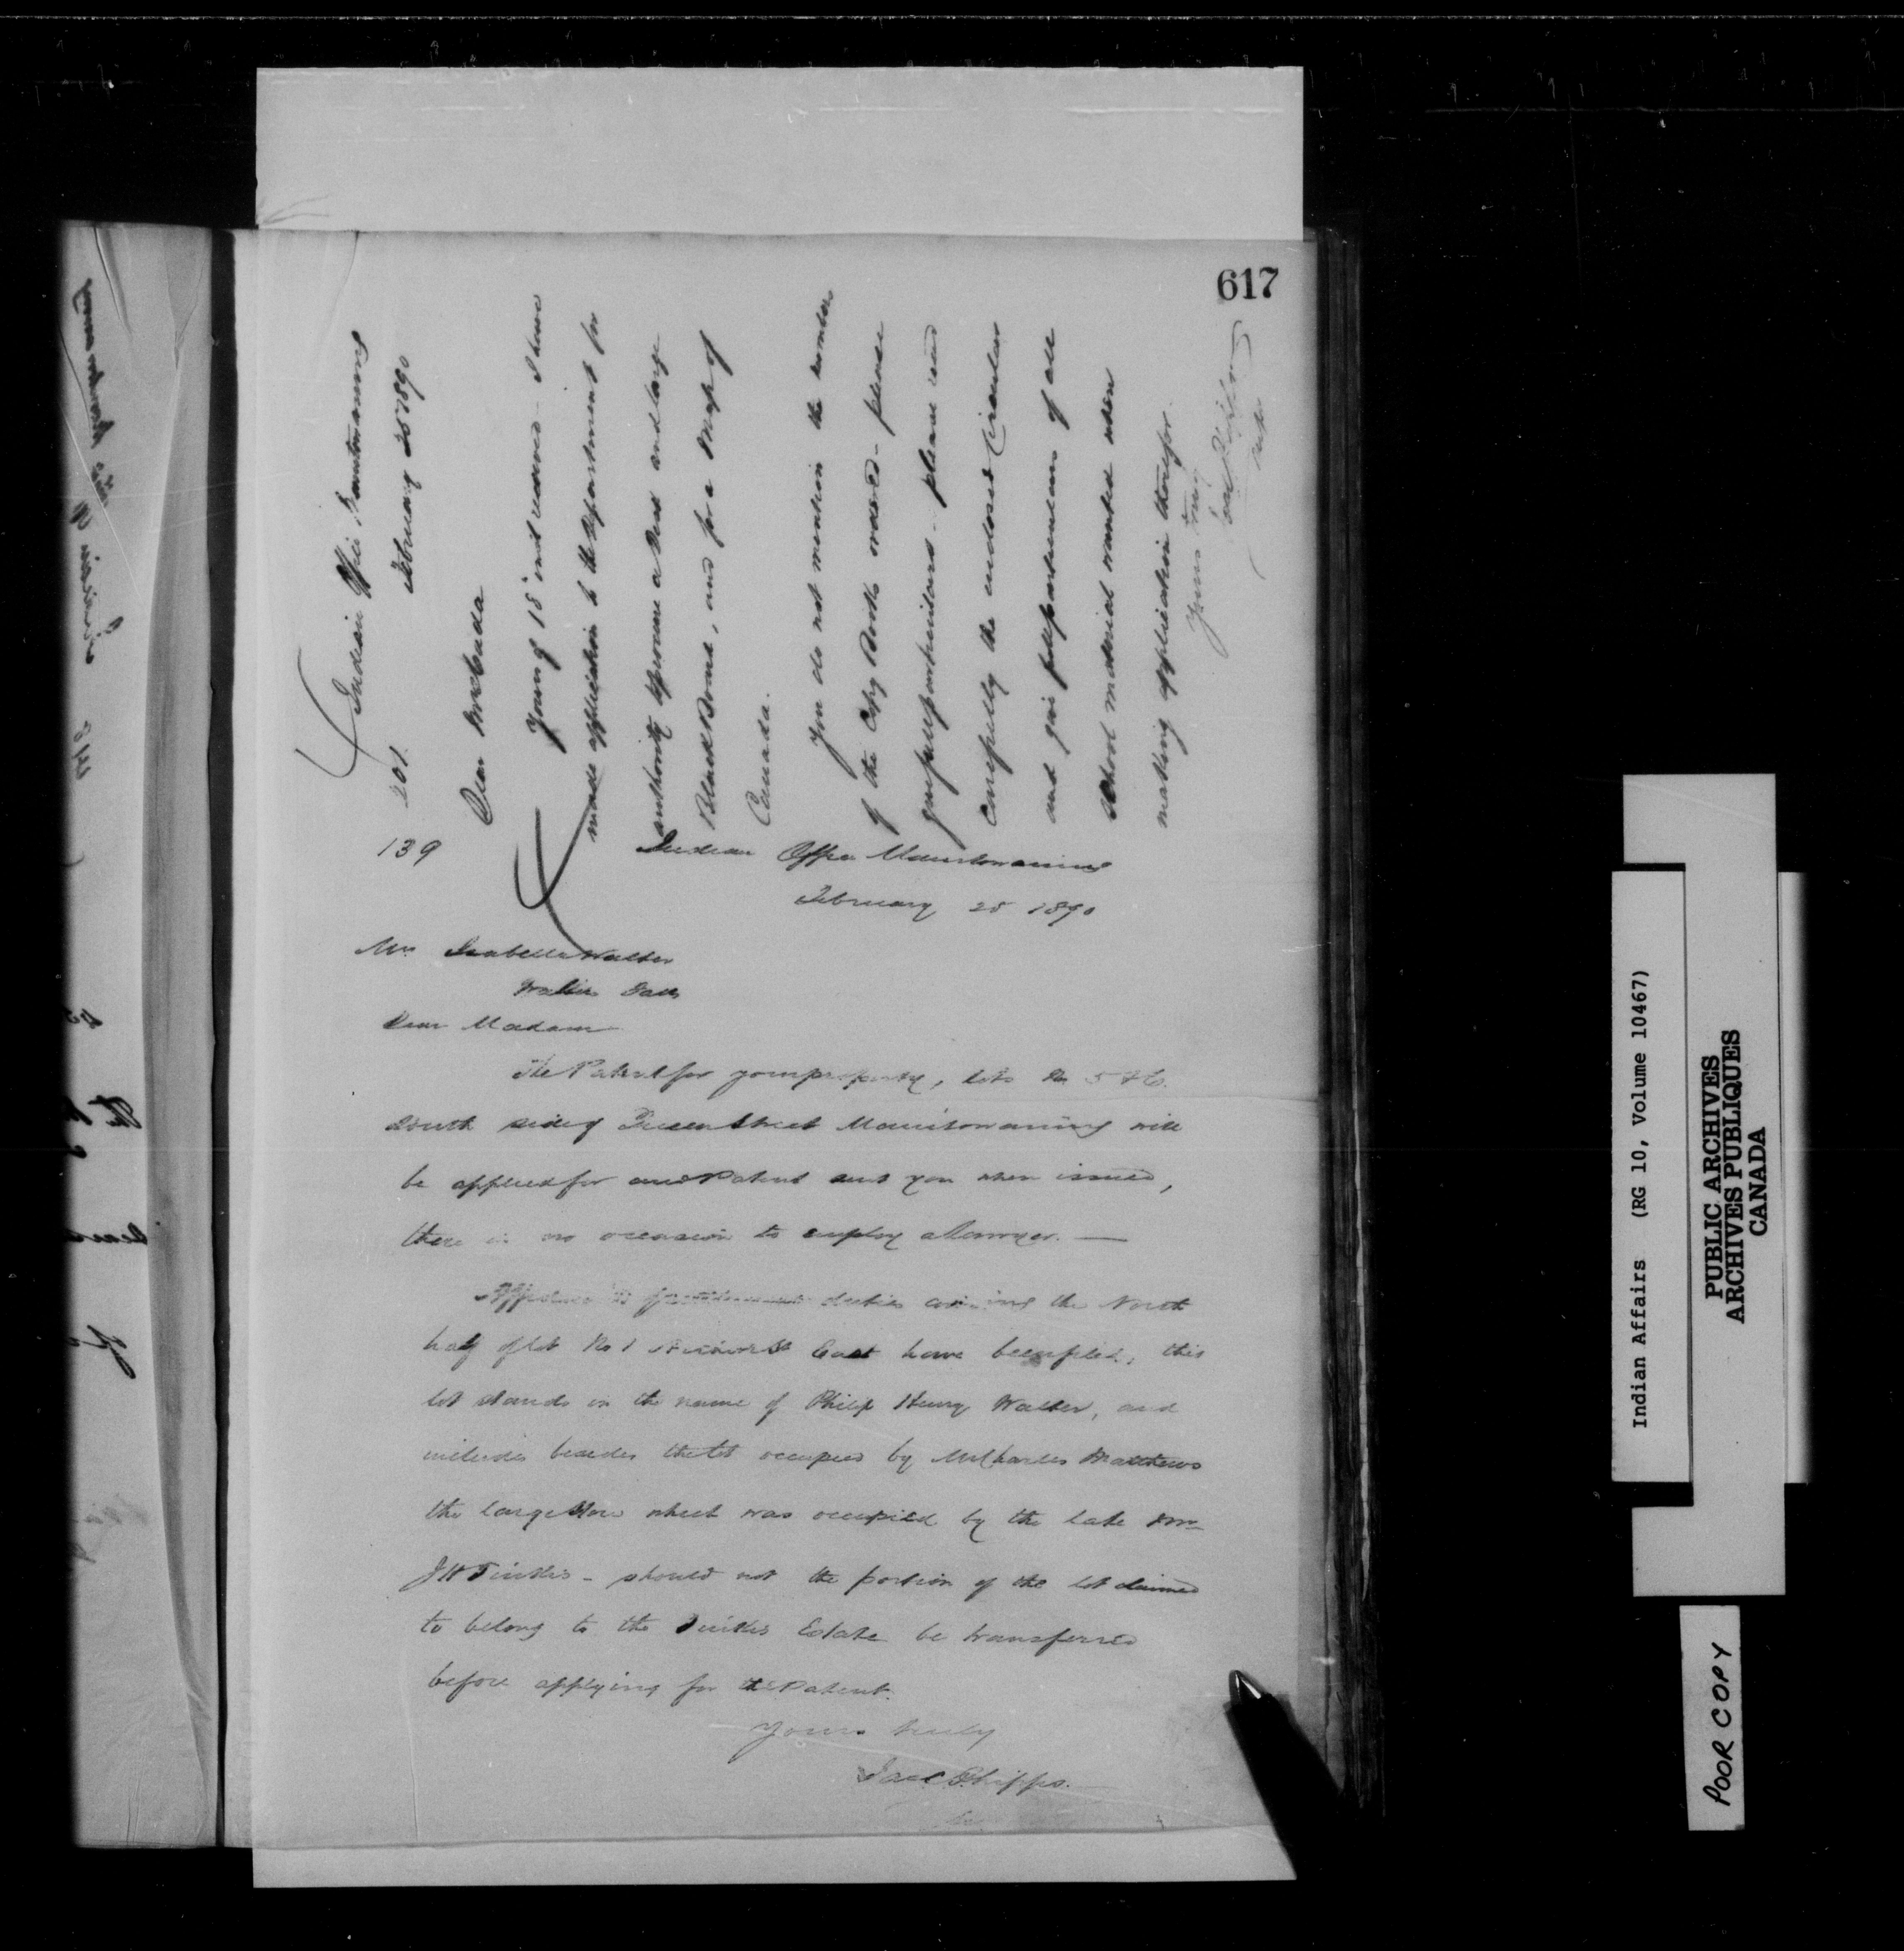 617
Indian Office Manitowaning
February 25 1890
201.
Dear McCuda
Yours of 18 inst received - I have
made application to the Department for
authority to procure a Desk and large
Black Board, and for a Map of
Canada.
You do not mention the number
of the Copy Books ordered - please
give full particulars - please read
carefully the enclosed Circular
and give full particulars of all
School material wanted when
making application therefor.
Yours truly
139
Indian Office Manitowaning
February 25 1890
Mrs Isabella Walter
Dear Madam
The Patent for your property, lots No 5 & 6
South side of Queen Street Manitowaning will
be applied for and Patent sent you when issued,
there is no occasion to employ a lawyer. —
duties covering the North
half of lot No 1 East have been filed, this
lot stands in the name of Philip Henry Walter, and
includes besides the lot occupied by Mr Charles Matthews
the large Store which was occupied by the late Mr
J H Tinkis - should not the portion of the lot claimed
to belong to the Tinkis Estate be transferred
before applying for the Patent.
Yours truly
Jas C Phipps.
Indian Affairs (RG 10, Volume 10467)
PUBLIC ARCHIVES
ARCHIVES PUBLIQUES
CANADA
POOR COPY